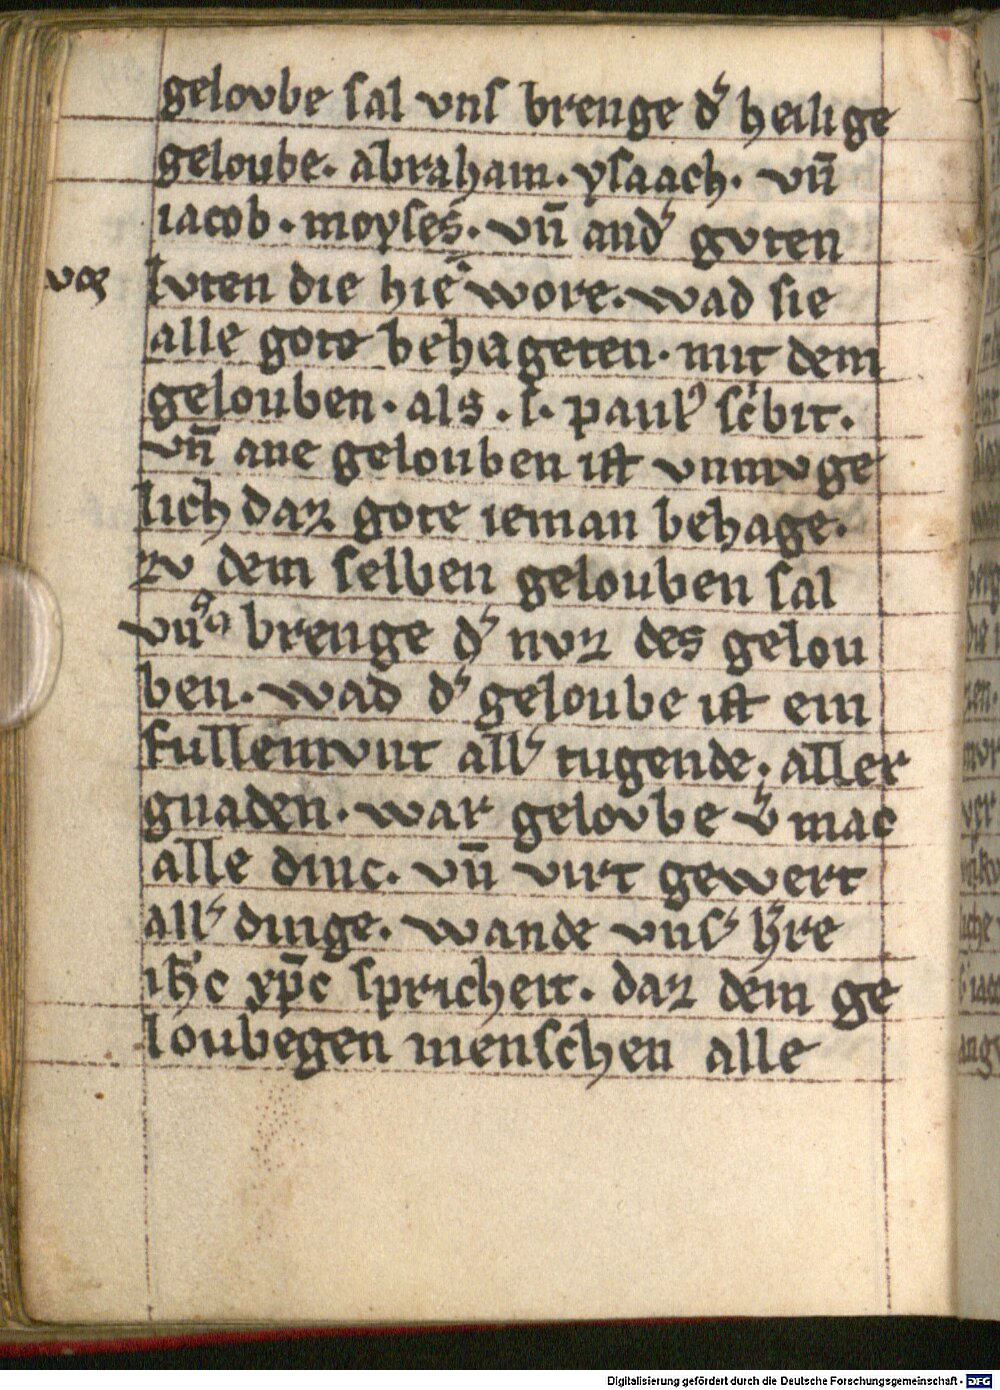 geloube sal vns brenge dˀ heilige
geloube. abraham. ysaach. vn̄
iacob. moyses. vn̄ andˀ guten
vor
luten die hie wore. wad sie
alle gote behageten. mit dem
gelouben. als. s. paulꝰ scͥbit.
vn̄ ane gelouben ist vnmvge
lich daz gote ieman behage.
zv dem selben gelouben sal
vns brenge dˀ nvz des gelou
ben. wad dˀ geloube ist ein
fullemvnt allˀ tugende. aller
gnaden. war geloube dˀ mac
alle dinc. vn̄ virt gewert
allˀ dinge. wande vnsˀ hˀre
ih̄c xp̄c spricheit. daz dem ge
loubegen menschen alle
Digitalisierung gefördert durch die Deutsche Forschungsgemeinschaft - DFG